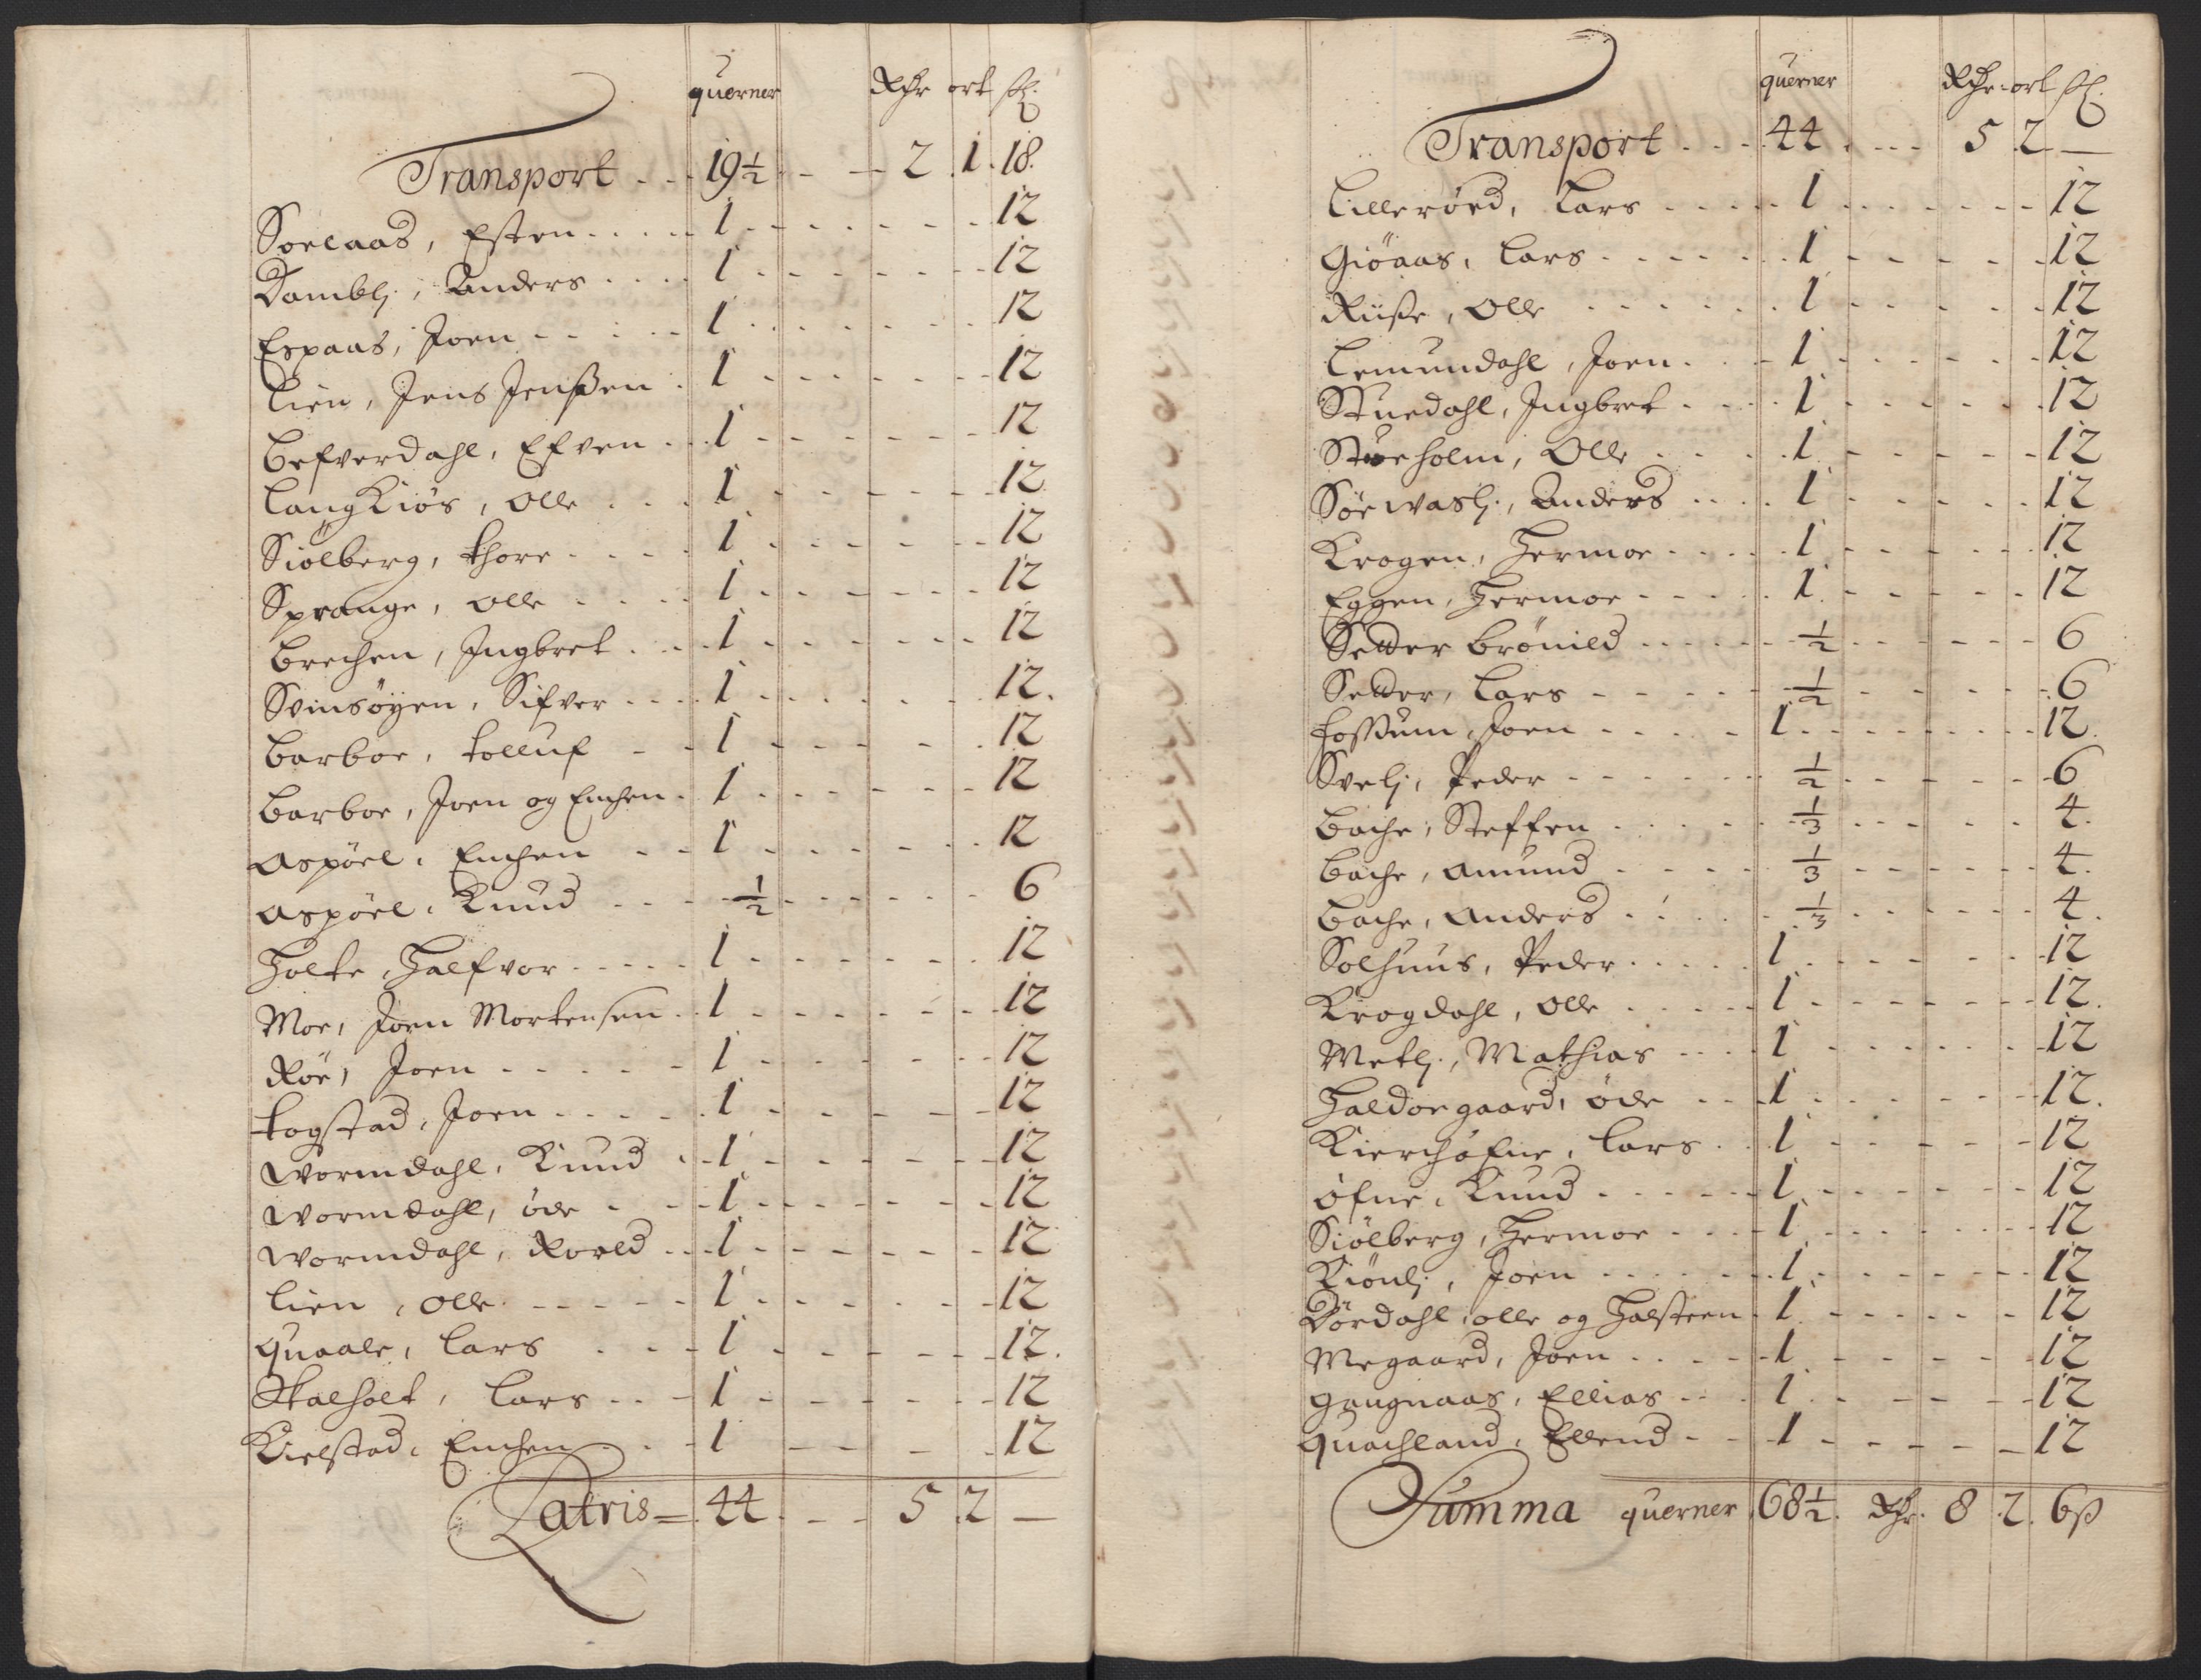 querner Rdr ort sk.
Transport 19½ 2 1 18
Soelaas, Esten 1 12
Damblj, Anders 1 12
Espaas, Joen 1 12
Lien, Jens Jenßen 1 12
Befverdahl, Efven 1 12
LangKiös, Olle 1 12
Siölberg, Thore 1 12
Sprange, Olle 1 12
Brechen, Ingbret 1 12
Svinsöyen, Sifver 1 12
Barboe, Tolluf 1 12
Barboe, Joen og Enchen 1 12
Aspöel, Enchen 1 12
Aspöel, Knud ½ 6
Holte, Halfvor 1 12
Moe, Joen Mortensen 1 12
Röe, Joen 1 12
Fogstad, Joen 1 12
Wormdahl, Knud 1 12
Wormdahl, öde 1 12
Wormdahl, Roald 1 12
Lien, Olle 1 12
Quaale, Lars 1 12
Skalholt, Lars 1 12
Kielstad, Enchen 1 12
Latris 44 5 2 —
querner Rdr ort sk.
Transport 44 5 2 —
Lilleröed, Lars 1 12
Giöaas, Lars 1 12
Riiße, Olle 1 12
Lemundahl, Joen 1 12
Stuedahl, Ingbret 1 12
Stueholm, Olle 1 12
Sörwaslj, Anders 1 12
Krogen, Hermoe 1 12
Eggen, Hermoe 1 12
Setter Brönild ½ 6
Setter, Lars ½ 6
Foßum, Joen 1 12
Svelj, Peder ½ 6
Bache, Steffen ⅓ 4
Bache, Amund ⅓ 4
Bache, Anders ⅓ 4
Solhuus, Peder 1 12
Krogdahl, Olle 1 12
Metlj, Mathias 1 12
Haldorgaard, öde 1 12
Kierchöfne, Lars 1 12
Öfne, Knud 1 12
Siölberg, Hermoe 1 12
Kiönlj, Joen 1 12
Dördahl, Olle og Halsteen 1 12
Megaard, Joen 1 12
Gaugnaas, Ellias 1 12
Quachland, Ellend 1 12
Summa querner 68½ Rdr. 8 2 6ß